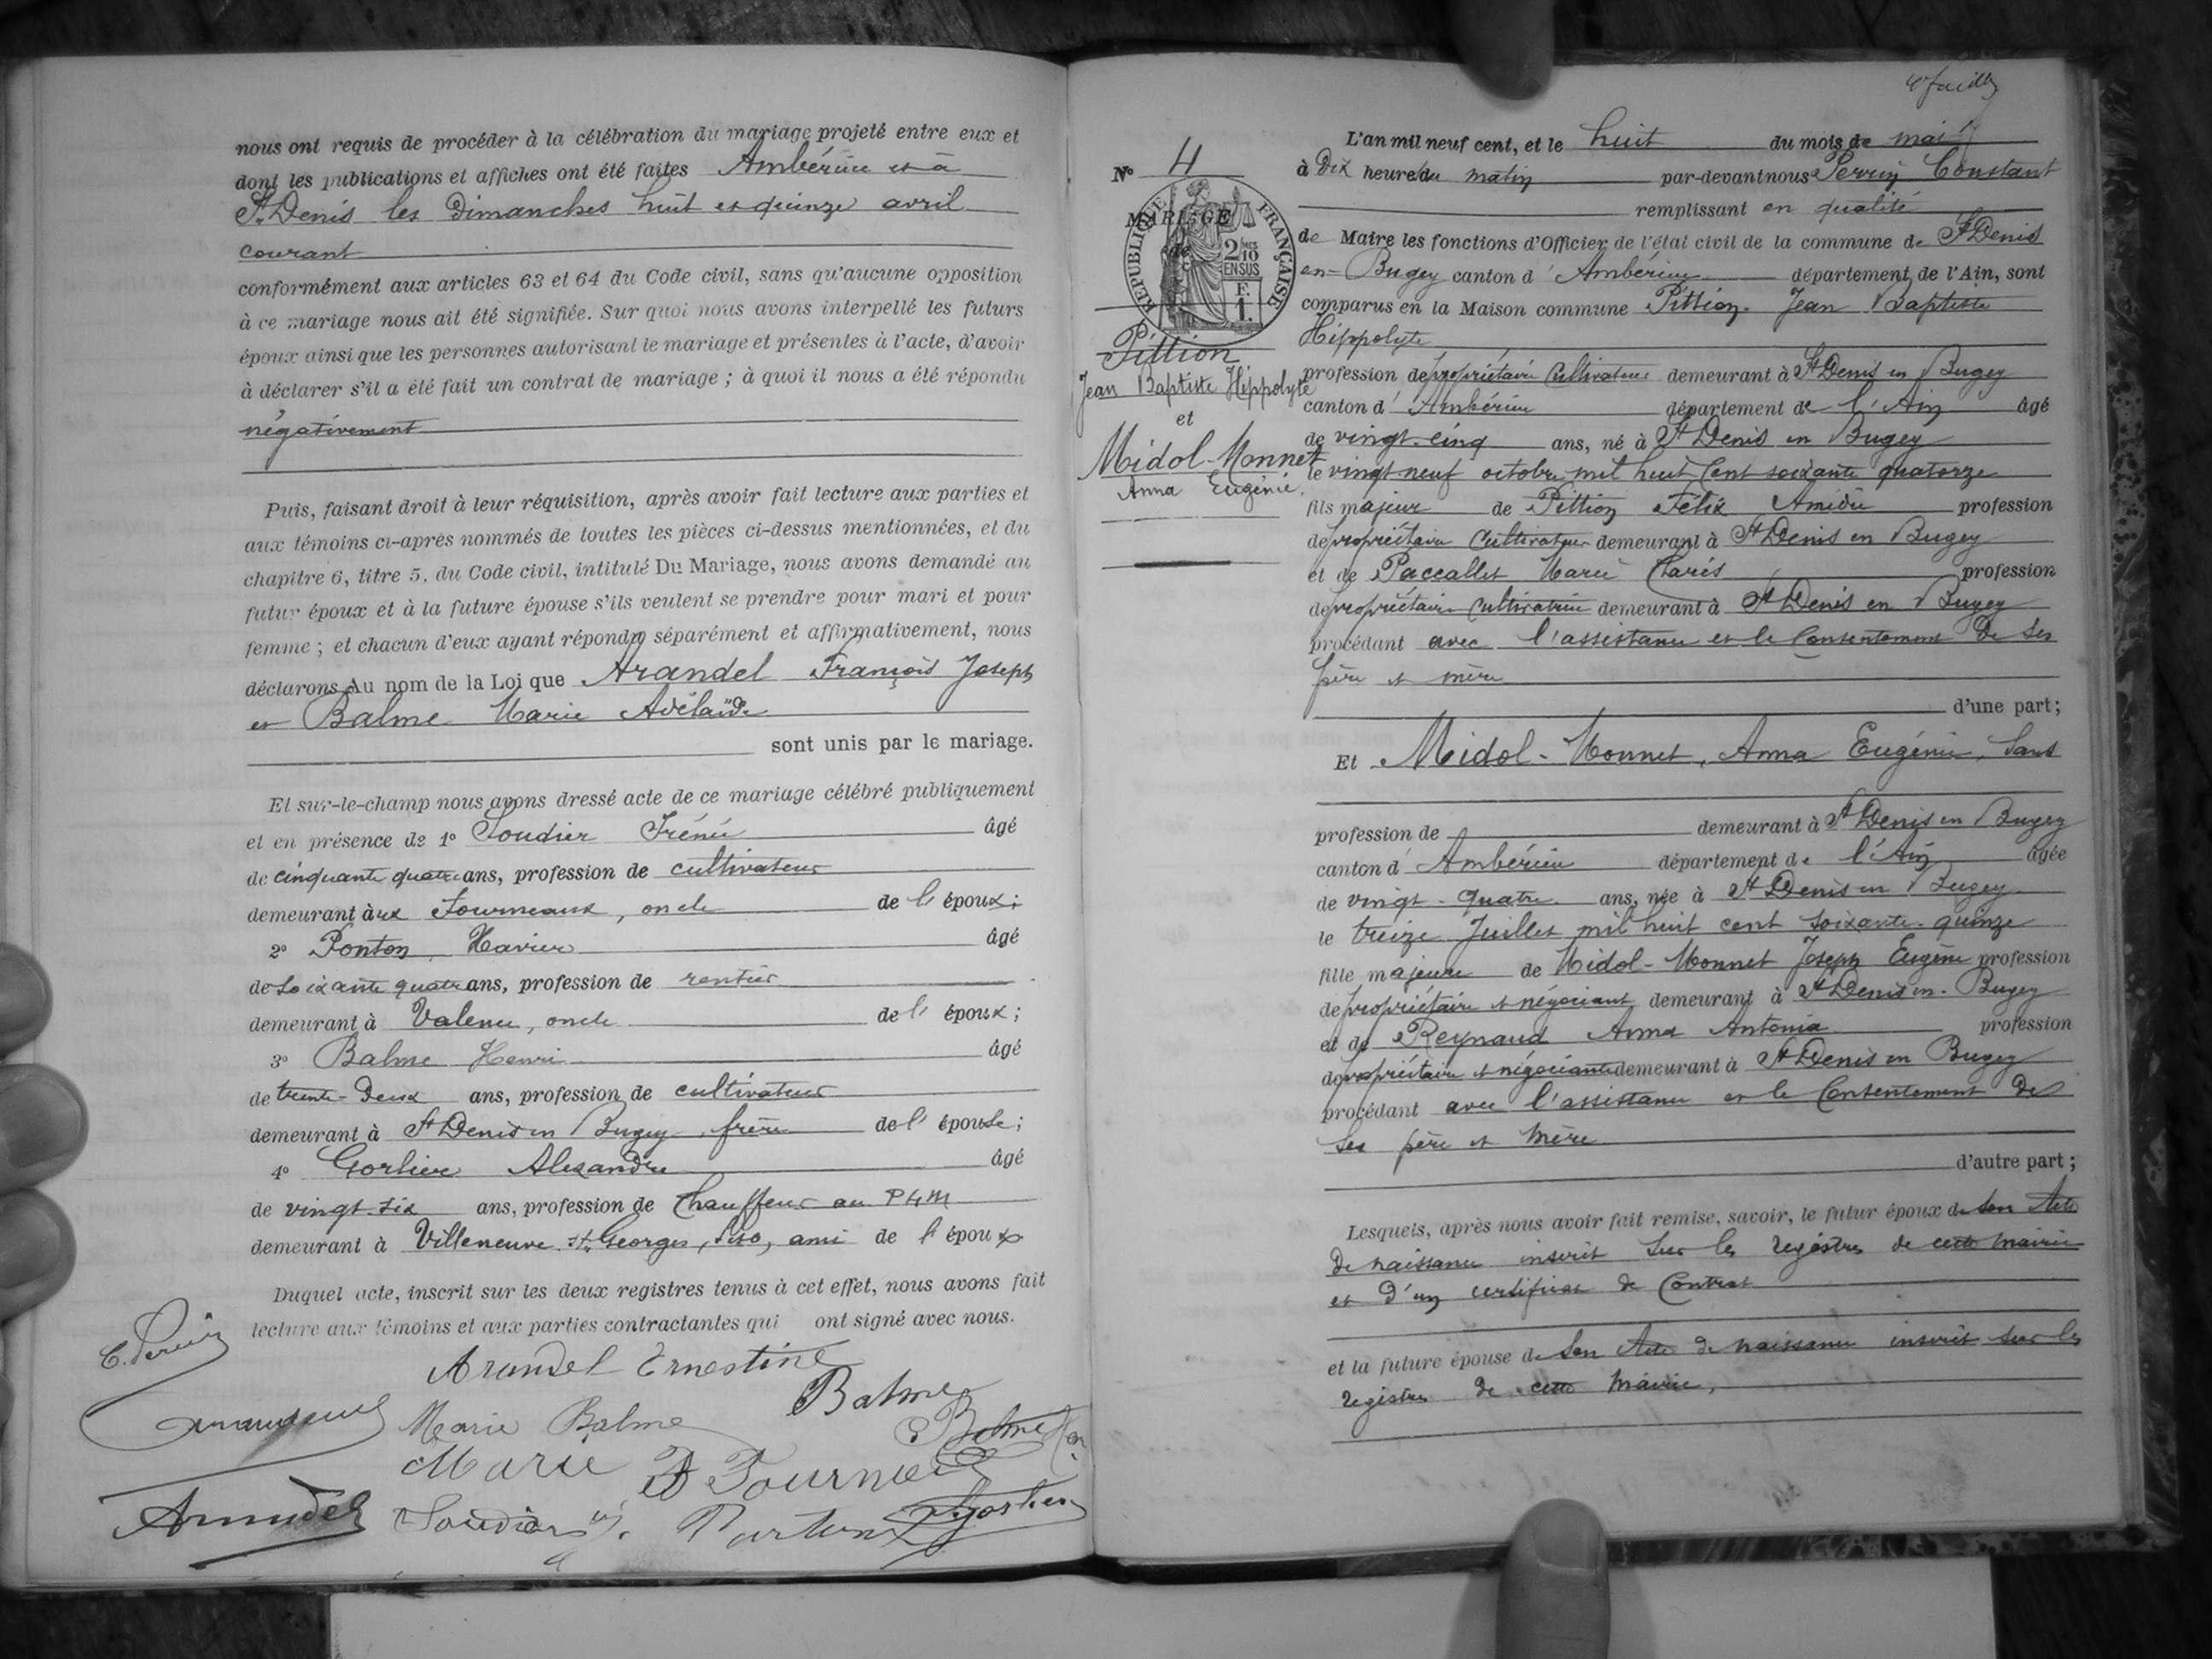 nous ont requis de procéder à la célébration du mariage projeté entre eux et
dont les publications et affiches ont été faites Ambérieu et à
St Denis les Dimanches huit et quinze avril
courant
conformément aux articles 63 et 64 du Code civil, sans qu'aucune opposition
à ce mariage nous ait été signifiée. Sur quoi nous avons interpellé les futurs
époux ainsi que les personnes autorisant le mariage et présentes à l'acte, d'avoir
à déclarer s'il a été fait un contrat de mariage ; à quoi il nous a été répondu
négativement
Puis, faisant droit à leur réquisition, après avoir fait lecture aux parties et
aux témoins ci-après nommés de toutes les pièces ci-dessus mentionnées, et du
chapitre 6, titre 5, du Code civil, intitulé Du Mariage, nous avons demandé au
futur époux et à la future épouse s'ils veulent se prendre pour mari et pour
femme ; et chacun d'eux ayant répondu séparément et affirmativement, nous
déclarons Au nom de la Loi que Arandel François Joseph
et Balme Marie Adélaïde
sont unis par le mariage.
Et sur-le-champ nous avons dressé acte de ce mariage célébré publiquement
et en présence de 1° Soudier Irénée âgé
de cinquante quatre ans, profession de cultivateur
demeurant aux Fourneaux, oncle de l'époux ;
2° Ponton Xavier âgé
de soixante quatre ans, profession de rentier
demeurant à Valence, oncle de l'époux ;
3° Balme Henri âgé
de trente-deux ans, profession de cultivateur
demeurant à St Denis en Bugey, frère de l'épouse ;
4° Gorlier Alexandre âgé
de vingt-six ans, profession de Chauffeur au PLM
demeurant à Villeneuve St Georges, ami de l'époux
Duquel acte, inscrit sur les deux registres tenus à cet effet, nous avons fait
lecture aux témoins et aux parties contractantes qui ont signé avec nous.
C. Perrin
Arandel Ernestine
Balme
Marie Balme
Balme Hri
Marie
Fournier
Arandel
Soudier
Ponton
Gorlier
4e feuillet
N° 4
MARIAGE
de
RÉPUBLIQUE FRANÇAISE
2/10 EN SUS
F. 1.
Pittion
Jean Baptiste Hippolyte
et
Midol-Monnet
Anna Eugénie
L'an mil neuf cent, et le huit du mois de mai
à Dix heure du matin par-devant nous Perrin Constant
remplissant en qualité
de Maire les fonctions d'Officier de l'état civil de la commune de St Denis
en-Bugey canton d'Ambérieu département de l'Ain, sont
comparus en la Maison commune Pittion Jean Baptiste
Hippolyte
profession de propriétaire Cultivateur demeurant à St Denis en Bugey
canton d'Ambérieu département de l'Ain âgé
de vingt-cinq ans, né à St Denis en Bugey
le vingt-neuf octobre mil huit cent soixante quatorze
fils majeur de Pittion Félix Amédée profession
de propriétaire Cultivateur demeurant à St Denis en Bugey
et de Paccallet Marie profession
de propriétaire cultivatrice demeurant à St Denis en Bugey
procédant avec l'assistance et le Consentement de ses
père et mère
d'une part ;
Et Midol-Monnet, Anna Eugénie, Sans
profession de demeurant à St Denis en Bugey
canton d'Ambérieu département de l'Ain âgée
de vingt-quatre ans, née à St Denis en Bugey
le treize Juillet mil huit cent soixante-quinze
fille majeure de Midol-Monnet Joseph Eugène profession
de propriétaire et négociant demeurant à St Denis en-Bugey
et de Reynaud Anna Antonia profession
de propriétaire et négociante demeurant à St Denis en Bugey
procédant avec l'assistance et le Consentement de
ses père et mère
d'autre part ;
Lesquels, après nous avoir fait remise, savoir, le futur époux de son Acte
de naissance inscrit sur les registres de cette mairie
et d'un certificat de Contrat
et la future épouse de son Acte de naissance inscrit sur les
registres de cette mairie,